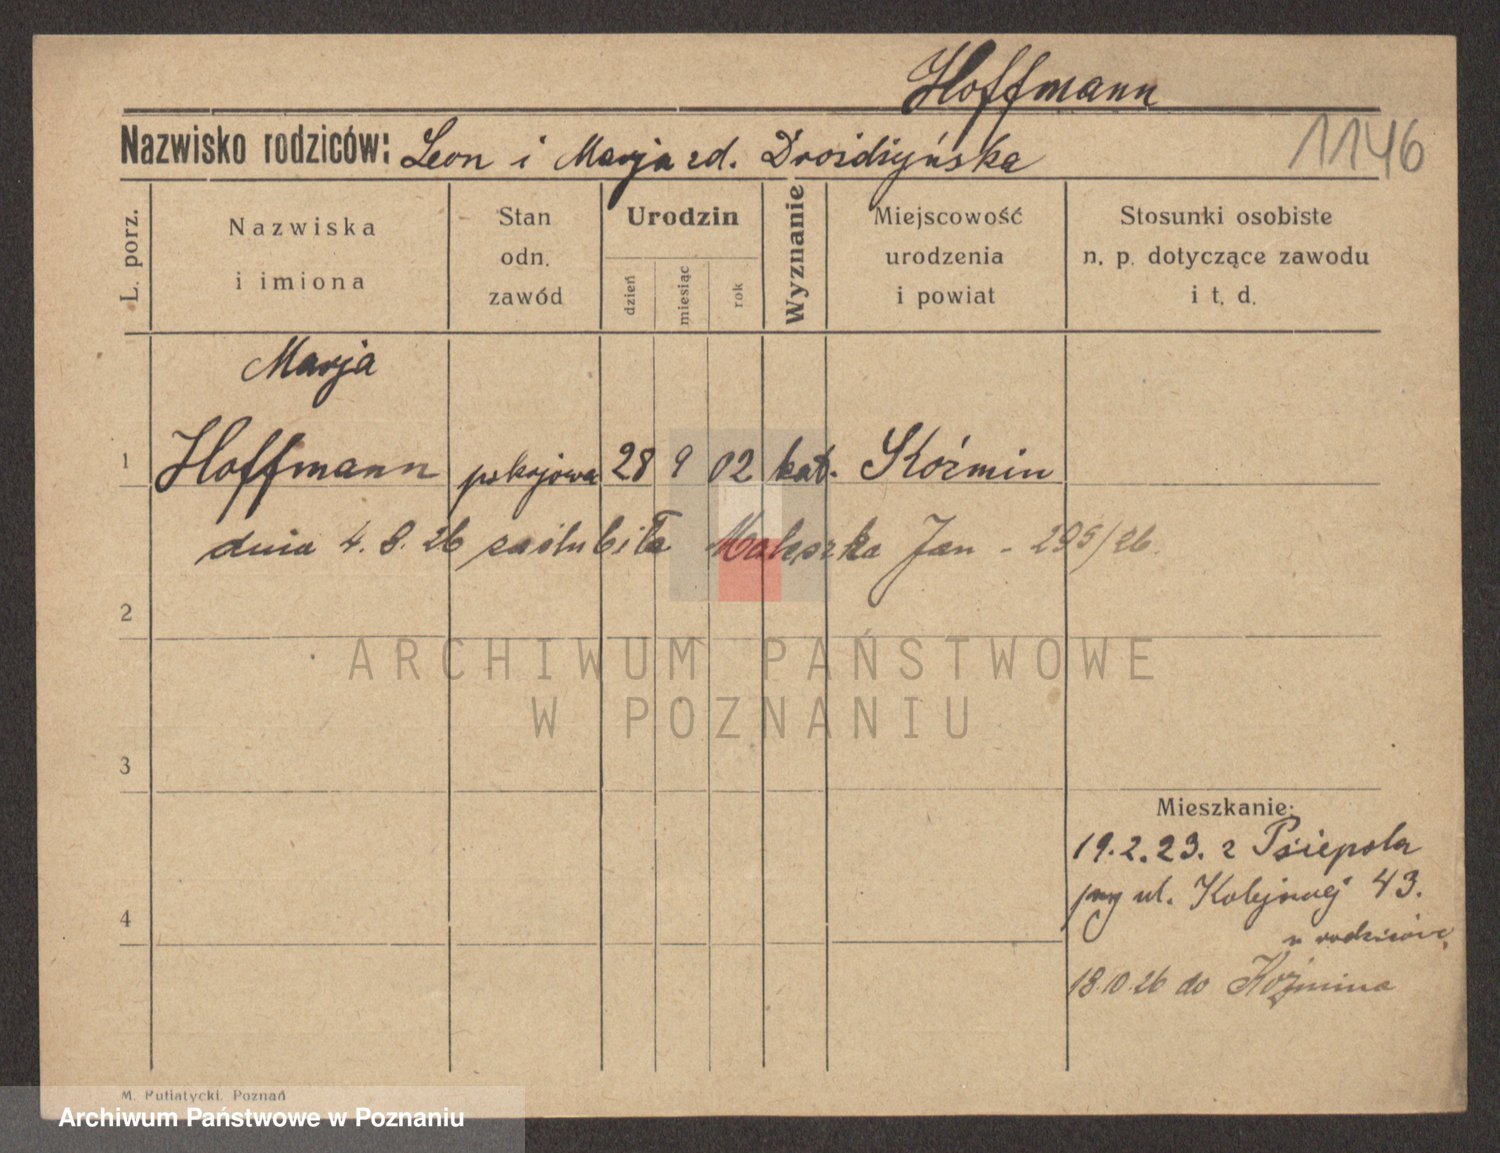 Hoffmann
Nazwisko rodziców: Leon i Marja zd. Droidżyńska
1146
L. porz.
Nazwiska
i imiona
Stan
odn.
zawód
Urodzin
dzień
miesiąc
rok
Wyznanie
Miejscowość
urodzenia
i powiat
Stosunki osobiste
n. p. dotyczące zawodu
i t. d.
Marja
1 Hoffmann pokojowa 28 9 02 kat. Koźmin
dnia 4. 8. 26 zaślubiła Małeszka Jan - 295/26.
2
ARCHIWUM PAŃSTWOWE
W POZNANIU
3
Mieszkanie:
19.2.23. z Psiepola
przy ul. Kolejowej 43.
4
u rodziców,
18.10.26 do Koźmina
M. Putiatycki, Poznań
Archiwum Państwowe w Poznaniu